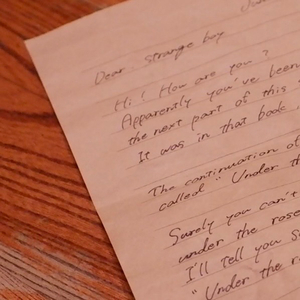 Dear strange boy
Hi! How are you?
Apparently you've been
the next part of this
It was in that book
The continuation of
called "Under th
Surely you can't
under the rose
I'll tell you s
"Under the ro